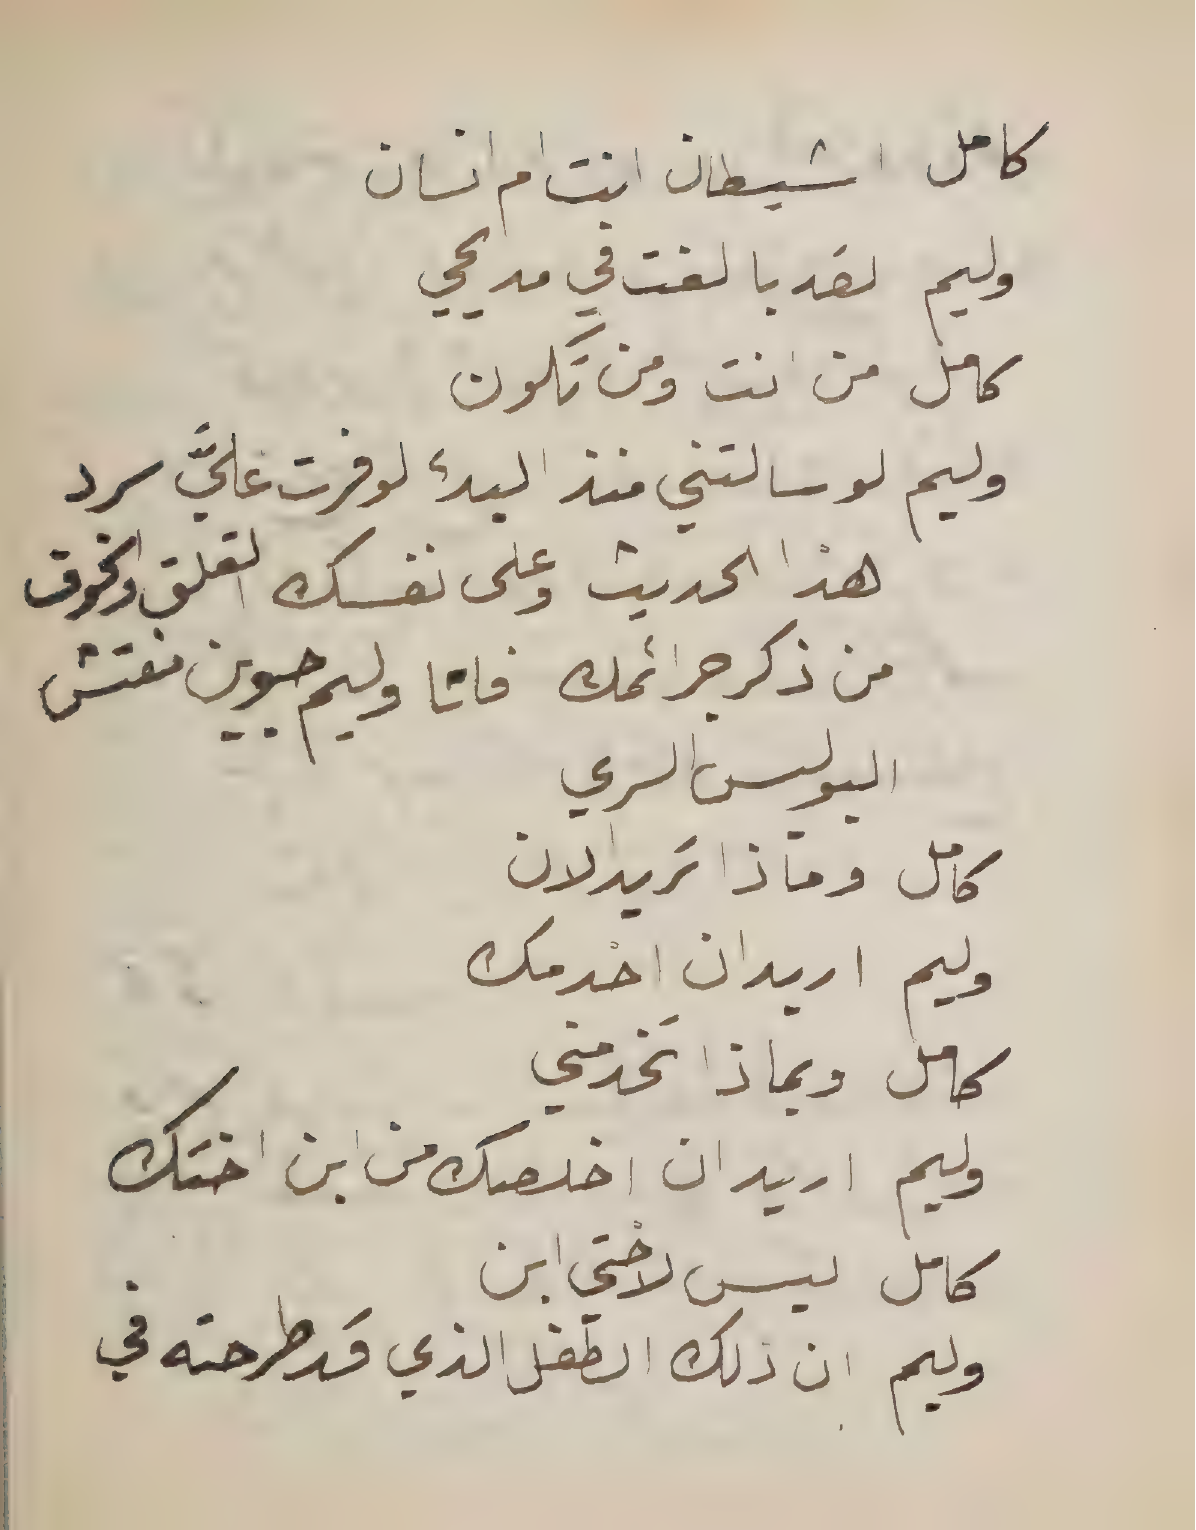 كامل اشيطان انت ام انسان
وليم لقد بالغت في مديحي
كامل من انت ومن تكون
وليم لو سالتني منذ البدء لوفرت عليَّ سرد
هذا الحديث وعلى نفسك القلق والخوف
من ذكر جرائمك فانا وليم جوين مفتش
البوليس السري
كامل وماذا تريد الان
وليم اريد ان اخدمك
كامل وبماذا تخدمني
وليم اريد ان اخلصك من ابن اختك
كامل ليس لاختي ابن
وليم ان ذلك الطفل الذي قد طرحته في